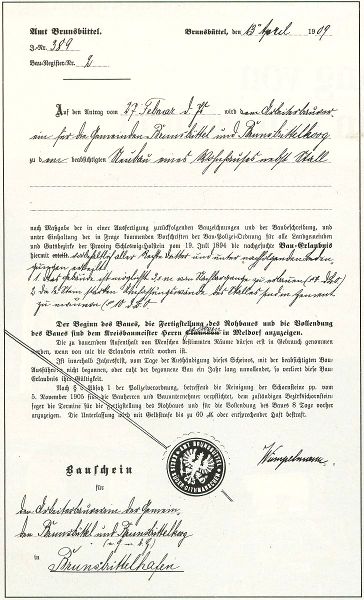 Amt Brunsbüttel.
Brunsbüttel, den 13 April 1909
J.-Nr. 389
Bau-Register-Nr. 2
Auf den Antrag vom 27 Februar d. Js wird dem Arbeiterbauver
ein für die Gemeinden Brunsbüttel und Brunsbüttelkoog
zu dem beabsichtigten Neubau eines Wohnhauses nebst Stall
nach Maßgabe der in einer Ausfertigung zurückfolgenden Bauzeichnungen und der Baubeschreibung, und
unter Einhaltung der in Frage kommenden Vorschriften der Bau-Polizei-Ordnung für alle Landgemeinden
und Gutsbezirke der Provinz Schleswig-Holstein vom 19. Juli 1894 die nachgesuchte Bau-Erlaubnis
hiermit vorbehaltlich aller Rechte dritter und unter nachfolgenden Bedin
gungen erteilt
1 das Gebäude ist möglichst 3 m von der Nachbargrenze zu
zu
Der Beginn des Baues, die Fertigstellung des Rohbaues und die Vollendung
des Baues sind dem Kreisbaumeister Herrn in Meldorf anzuzeigen.
Die zu dauerndem Aufenthalt von Menschen bestimmten Räume dürfen erst in Gebrauch genommen
werden, wenn von mir die Erlaubnis erteilt worden ist.
Ist innerhalb Jahresfrist, vom Tage der Aushändigung dieses Scheines, mit der beabsichtigten Bau-
Ausführung nicht begonnen, oder ruht der begonnene Bau ein Jahr lang unvollendet, so verliert diese Bau-
erlaubnis ihre Gültigkeit.
Nach § 5 Absatz 1 der Polizeiverordnung, betreffend die Reinigung der Schornsteine pp. vom
5. November 1905 sind die Bauherren und Bauunternehmer verpflichtet, dem zuständigen Bezirksschornstein-
feger die Termine für die Fertigstellung des Rohbaues und für die Vollendung des Baues 8 Tage vorher
anzuzeigen. Die Unterlassung wird mit Geldstrafe bis zu 60 M. oder entsprechender Haft bestraft.
AMT BRUNSBÜTTEL
Bauschein
für
den Arbeiterbauverein der Gemein
den Brunsbüttel und Brunsbüttelkoog
in
Brunsbüttelhafen